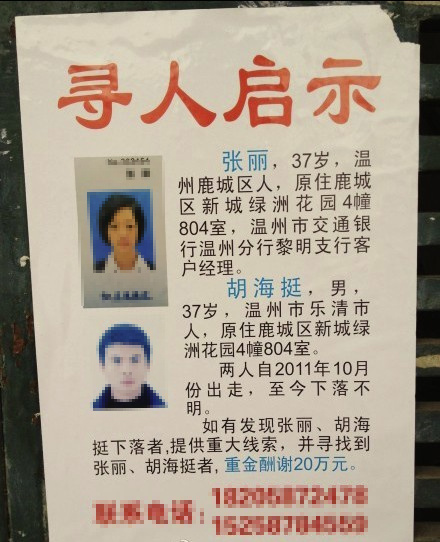 寻人启示
张丽，37岁，温
州鹿城区人，原住鹿城
区新城绿洲花园4幢
804室，温州市交通银
行温州分行黎明支行客
户经理。
胡海挺，男，
37岁，温州市乐清市
人，原住鹿城区新城绿
洲花园4幢804室。
两人自2011年10月
份出走，至今下落不
明。
如有发现张丽、胡海
挺下落者,提供重大线索，并寻找到
张丽、胡海挺者,重金酬谢20万元。
联系电话：